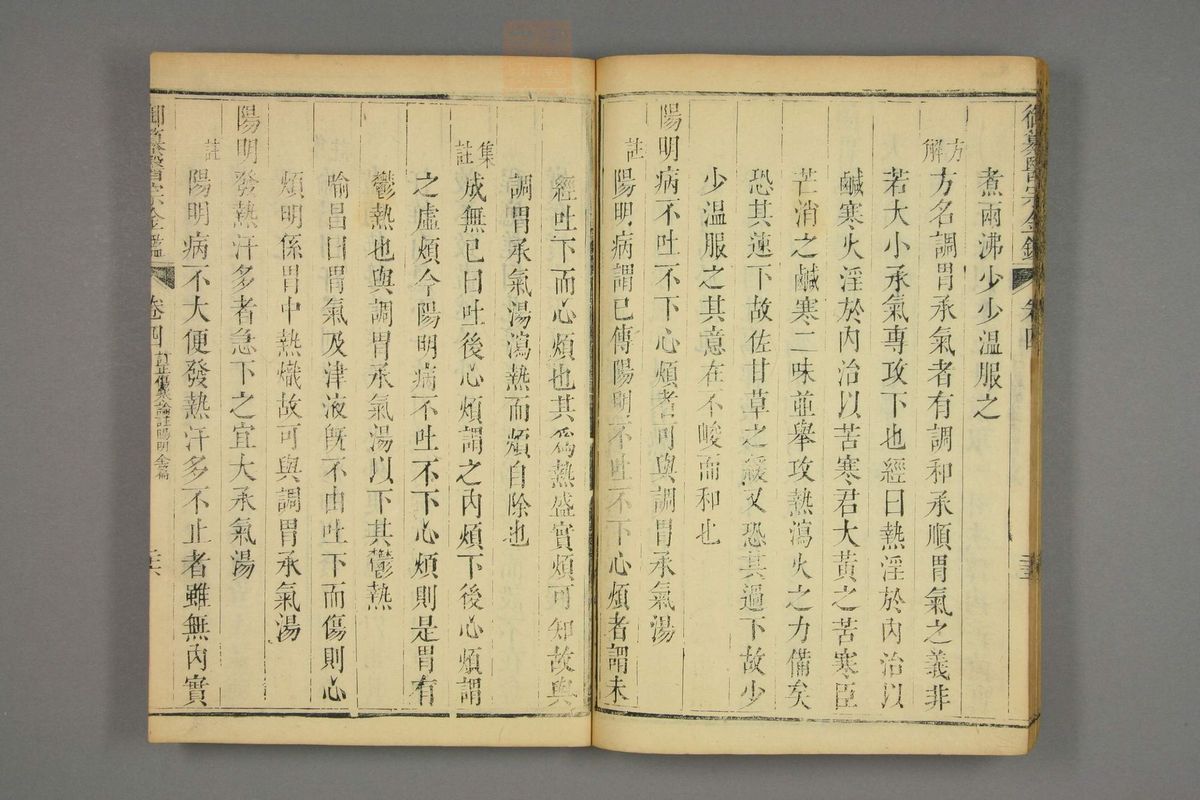 御纂醫宗金鑑 卷四
煮兩沸少少溫服之
方解 方名調胃承氣者有調和承順胃氣之義非
若大小承氣專攻下也經曰熱淫於內治以
鹹寒火淫於內治以苦寒君大黃之苦寒臣
芒消之鹹寒二味並舉攻熱瀉火之力備矣
恐其速下故佐甘草之緩又恐其過下故少
少溫服之其意在不峻而和也
陽明病不吐不下心煩者可與調胃承氣湯
註 陽明病謂已傳陽明不吐不下心煩者謂未
經吐下而心煩也其為熱盛實煩可知故與
調胃承氣湯瀉熱而煩自除也
集註 成無已曰吐後心煩謂之內煩下後心煩謂
之虛煩今陽明病不吐不下心煩則是胃有
鬱熱也與調胃承氣湯以下其鬱熱
喻昌曰胃氣及津液旣不由吐下而傷則心
煩明係胃中熱熾故可與調胃承氣湯
陽明發熱汗多者急下之宜大承氣湯
註 陽明病不大便發熱汗多不止者雖無內實
御纂醫宗金鑑 卷四 訂正傷寒論註陽明全篇 三六